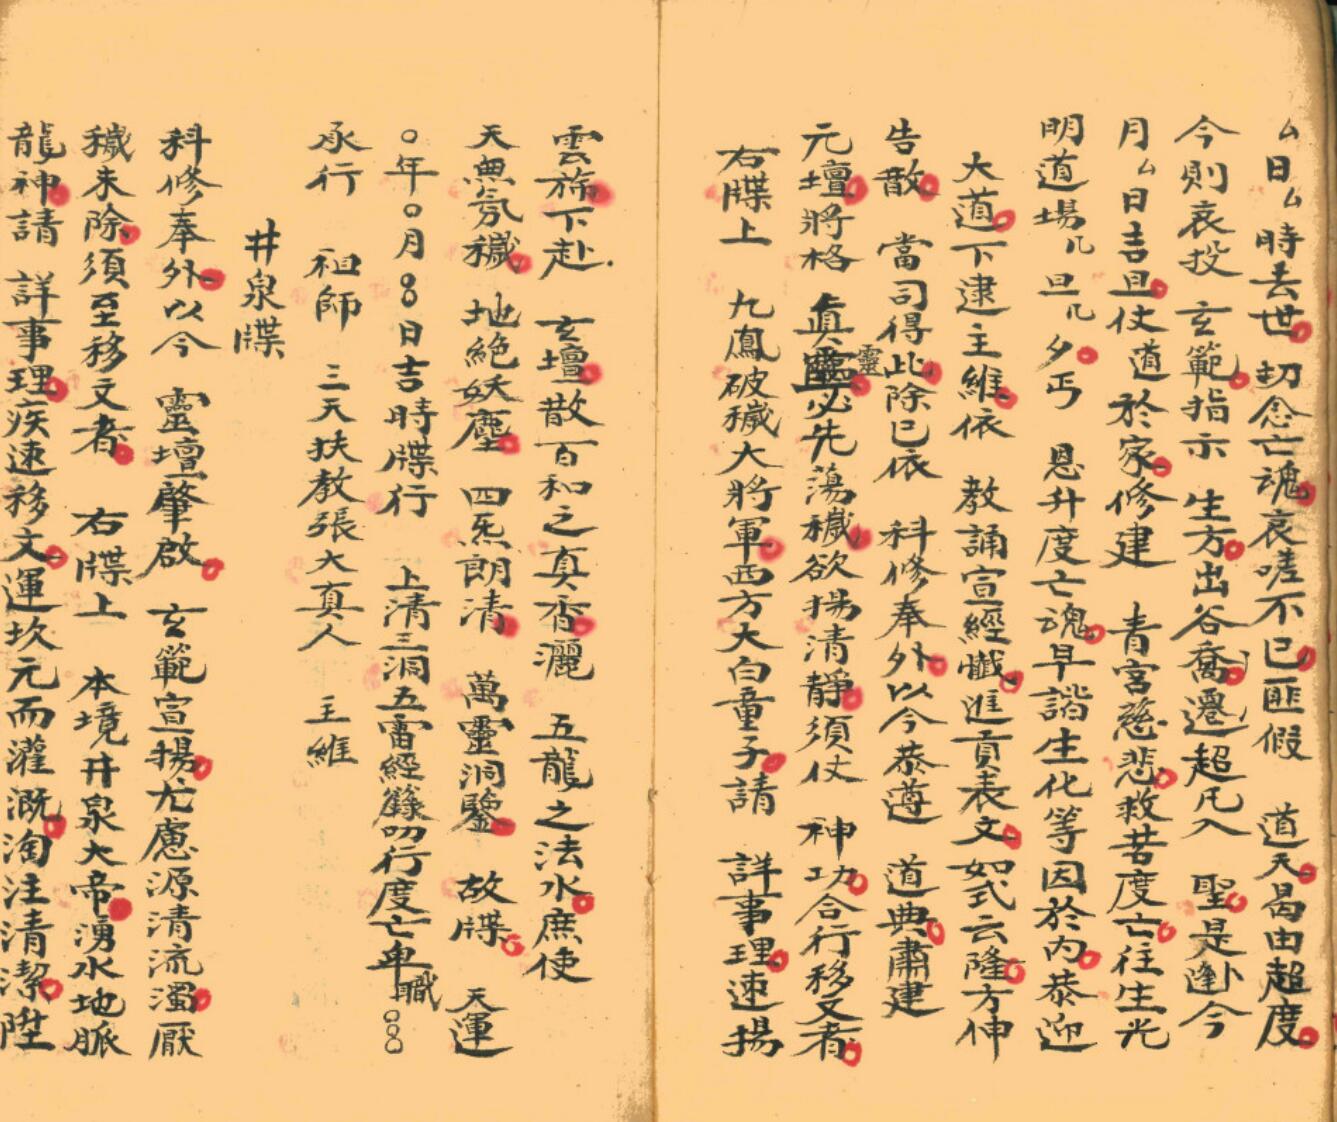 厶日厶時去世切念亡魂哀嗟不已匪假 道天曷由超度
今則哀投 玄範指示 生方出谷喬遷超凡入 聖是逢卜今
月厶日吉旦仗道於家修建 青宮慈悲救苦度亡往生光
明道場几旦几夕丐 恩升度亡魂早諧生化等因於內恭迎
大道下逮主維依 教誦宣經懺進貢表文如式云隆方伸
告散 當司得此除已依 科修奉外以今恭遵 道典肅建
元壇將格 真靈必先蕩穢欲揚清靜須仗 神功合行移文者
右牒上 九鳳破穢大將軍西方大白童子請 詳事理速揚
雲旆下赴 玄壇散百和之真香灑 五龍之法水庶使
天無氛穢 地絕妖塵 四炁朗清 萬靈洞鑒 故牒 天運
○年○月○○日吉時牒行 上清三洞五雷經籙叨行度亡舉職○○
承行 祖師 三天扶教張大真人 主維
井泉牒
科修奉外以今 靈壇肇啟 玄範宣揚尤慮源清流濁厭
穢未除須至移文者 右牒上 本境井泉大帝湧水地脈
龍神請 詳事理疾速移文運坎元而灌溉淘注清潔陞